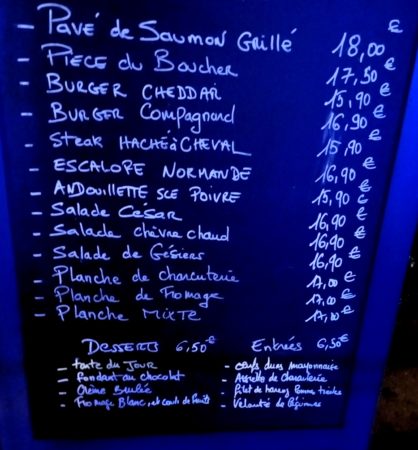 - Pavé de Saumon Grillé 18,00 €
- Piece du Boucher 17,50 €
- Burger CHEDDAR 15,90 €
- Burger Campagnard 16,90 €
- Steak HACHÉ à CHEVAL 15,90 €
- ESCALOPE NORMANDE 16,90 €
- ANDOUILLETTE SCE POIVRE 15,90 €
- Salade César 16,90 €
- Salade chèvre chaud 16,90 €
- Salade de Gésiers 16,90 €
- Planche de charcuterie 17,00 €
- Planche de Fromage 17,00 €
- Planche MIXTE 17,00 €
DESSERTS 6,50€
- tarte du JOUR
- fondant au chocolat
- Crème Brulée
- Fromage Blanc, et coulis de fruits
Entrées 6,50€
- œufs durs mayonnaise
- Assiette de charcuterie
- filet de hareng Pomme tièdes
- Velouté de légumes